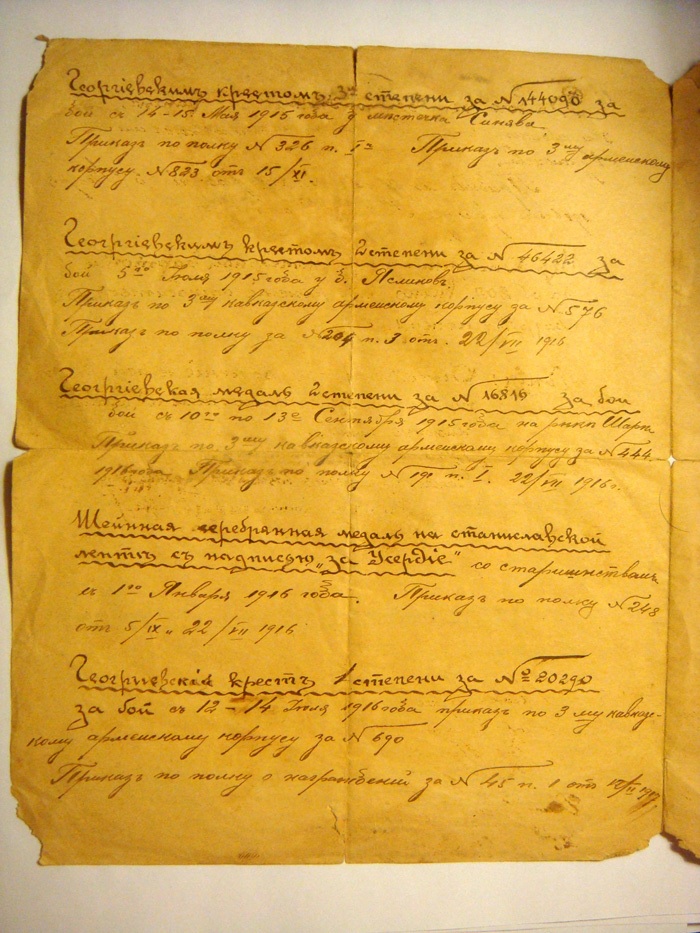 Георгіевскимъ крестомъ 3й степени за № 144090 за
бой съ 14-15 Мая 1915 года у мѣстечка Синява
Приказъ по полку № 326 п. I Приказъ по 3му армейскому
корпусу № 823 отъ 15/XI.
Георгіевскимъ крестомъ 2 степени за № 46422 за
бой 5го Іюля 1915 года у д.
Приказъ по 3му кавказскому армейскому корпусу за № 576
Приказъ по полку за № 204 п. 3 отъ. 22/VII 1916
Георгіевская медаль 2 степени за № 16816 за бои
бой съ 10го по 13е Сентября 1915 года на рѣкѣ Шара
Приказъ по 3му кавказскому армейскому корпусу за № 444
1916 года Приказъ по полку № 191 п. I. 22/VII 1916 г.
Шейнная серебрянная медаль на станиславской
лентѣ съ надписью „за Усердіе" со старшинствомъ
съ 1го Января 1916 года. Приказъ по полку № 248
отъ 5/IX и 22/VII 1916
Георгиевскій крестъ 1 степени за № 20290
за бой съ 12-14 Іюля 1916 года приказъ по 3 му кавказ-
кому армейскому корпусу за № 690
Приказъ по полку о награждении за № 45 п. 1 отъ